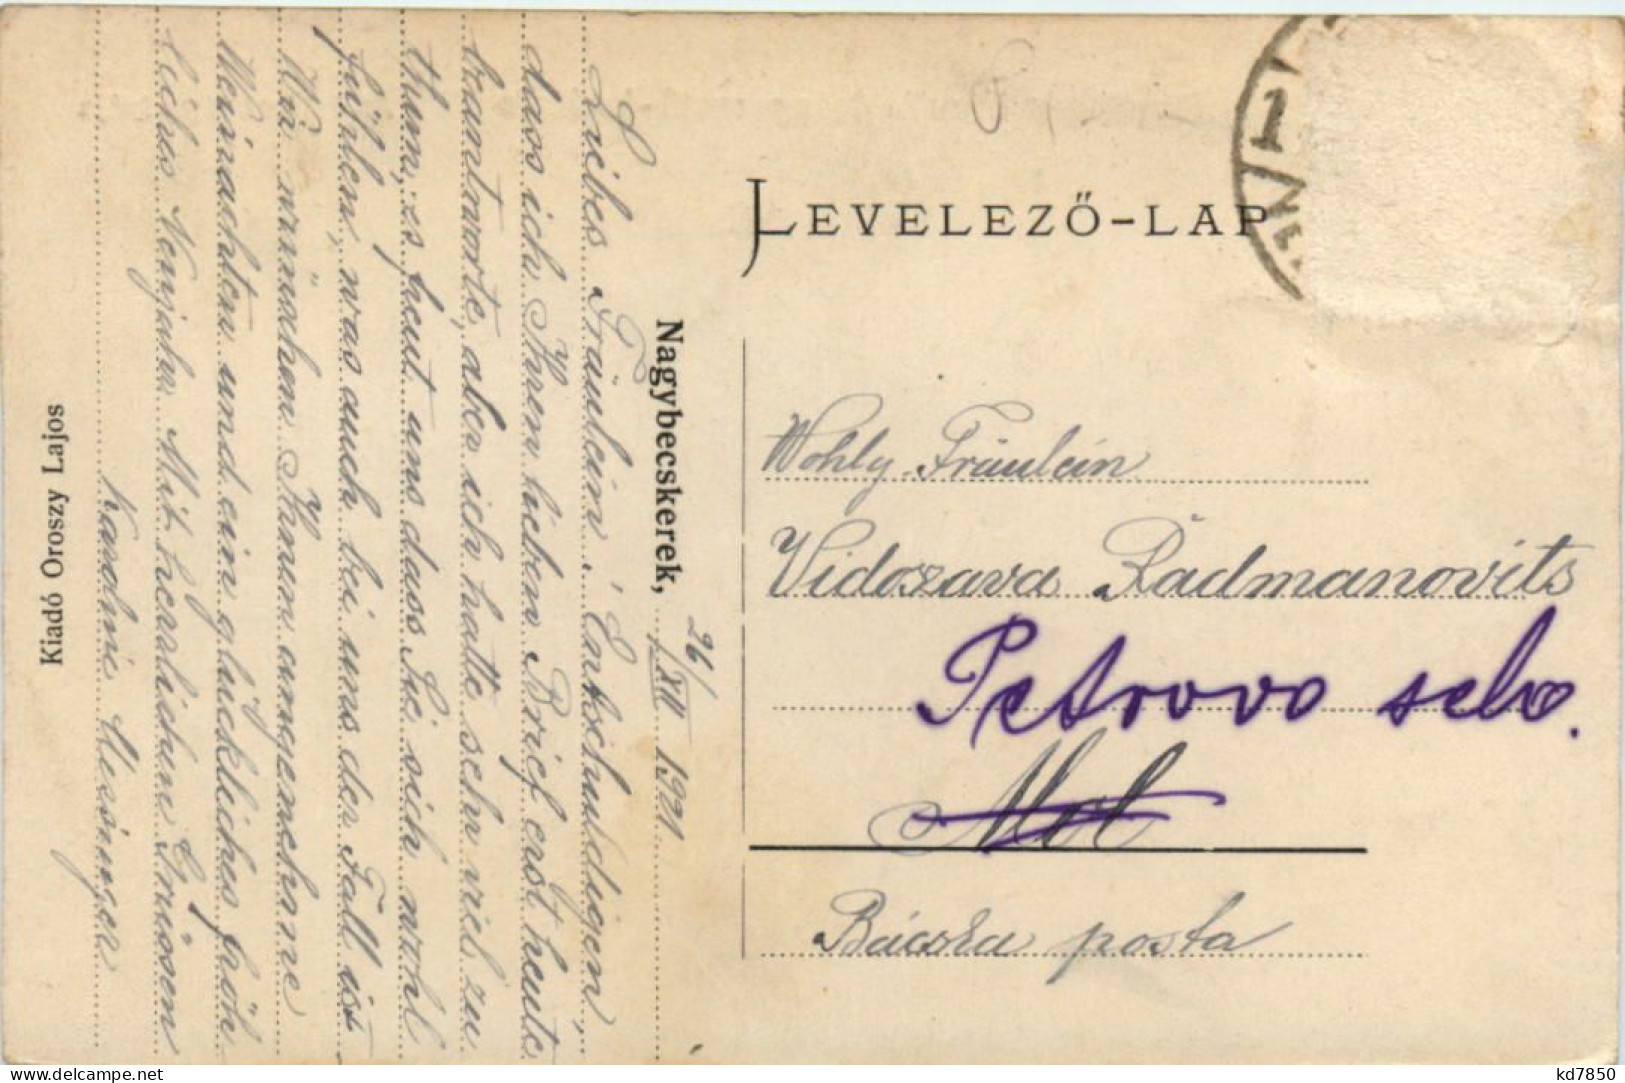 LEVELEZŐ-LAP
Wohlg. Fräulein
Vidoszava Radmanovits
Petrovo selo.
Mol
Bácska posta
Nagybecskerek, 26/XII 1921
Liebes Fräulein! Entschuldigen,
dass ich Ihren lieben Brief erst heute
beantworte, aber ich hatte sehr viel zu
thun, es freut uns dass Sie sich wohl
fühlen, was auch bei uns der Fall ist
Wir wünschen Ihnen angenehme
Weinachten und ein glückliches fröh
liches Neujahr. Mit herzlichen Grüssen
Karoline
Kiadó Oroszy Lajos
kd7850